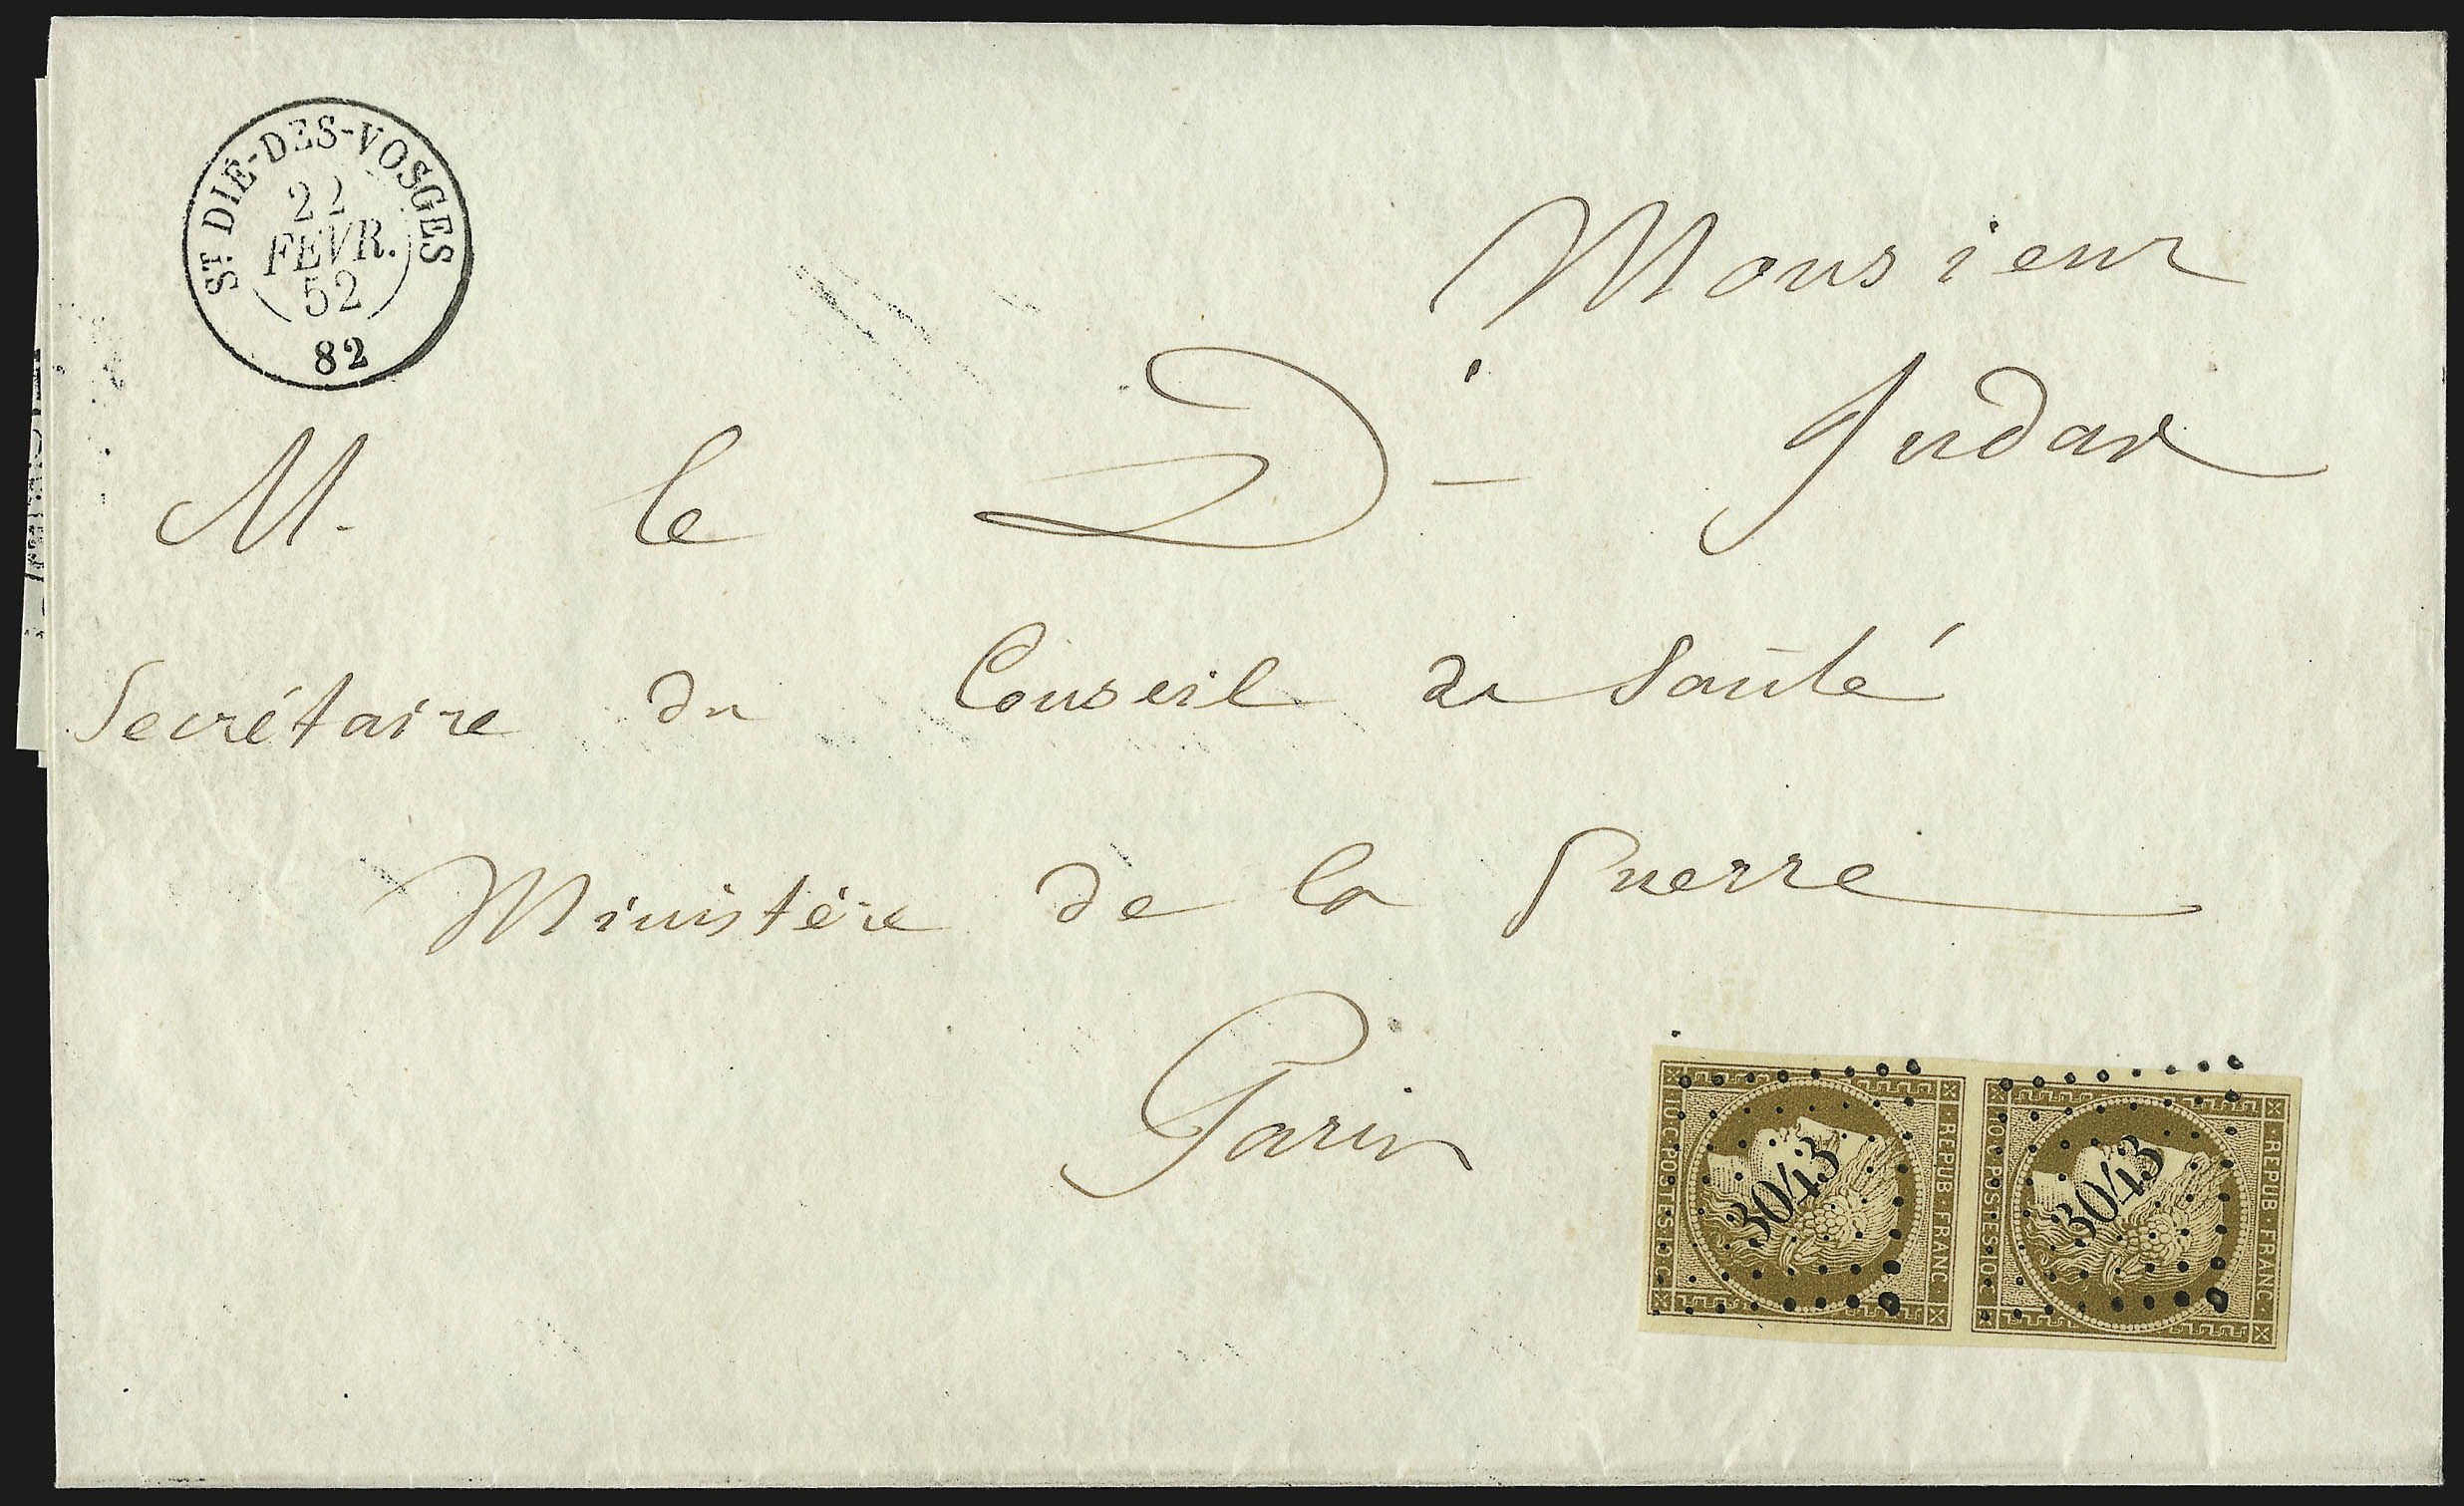 ST DIÉ-DES-VOSGES
22
FEVR.
52
82
Monsieur
M. le Dr Judas
Secrétaire du Conseil de Santé
Ministère de la Guerre
Paris
10·C·POSTES·10·C· 3043 ·REPUB·FRANC·
10·C·POSTES·10·C 3043 ·REPUB·FRANC·